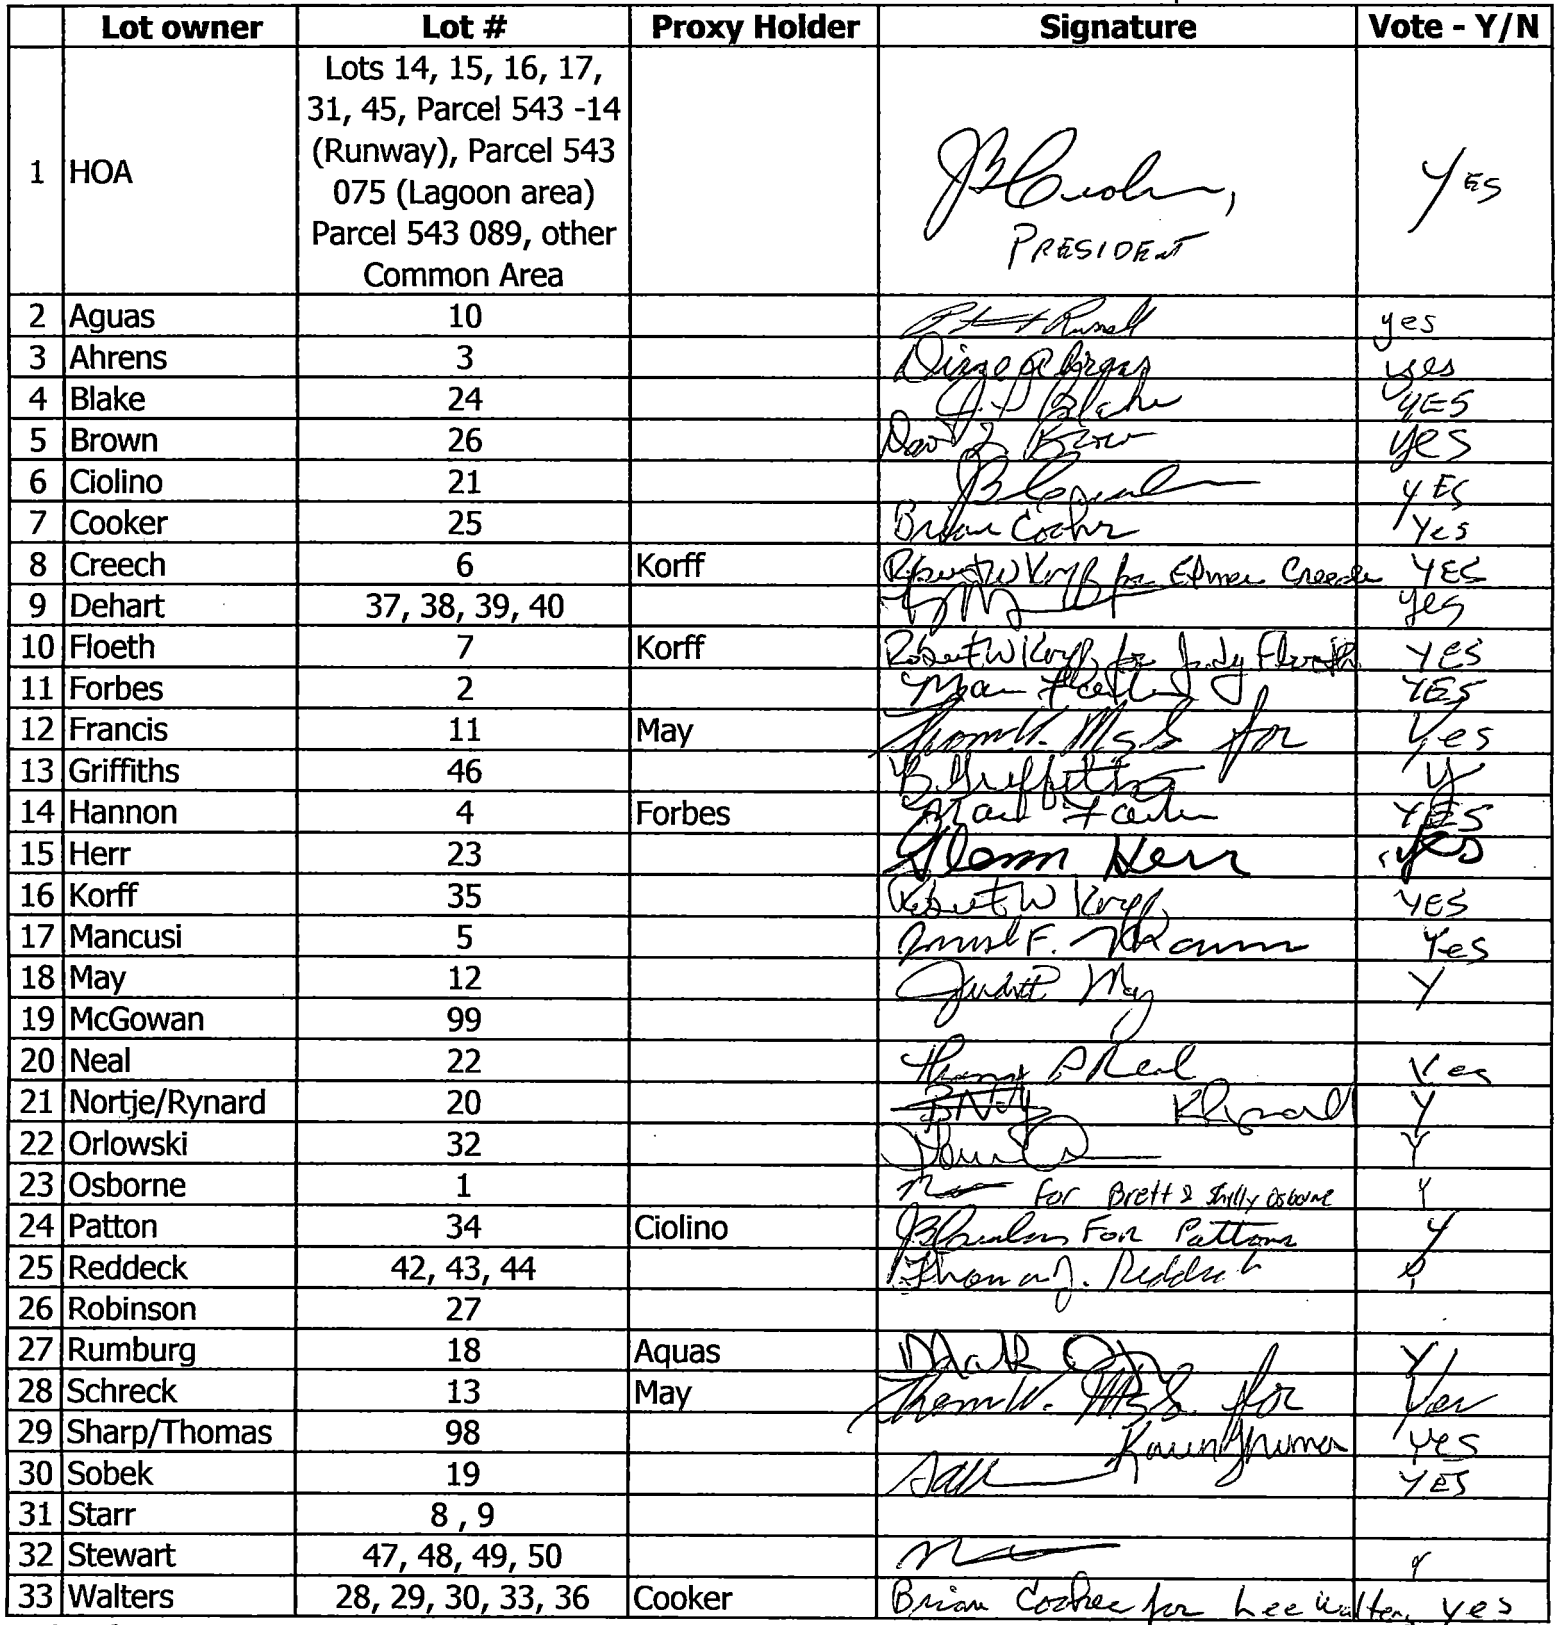 Lot owner Lot # Proxy Holder Signature Vote - Y/N
Lots 14, 15, 16, 17,
31, 45, Parcel 543 -14
(Runway), Parcel 543
1 HOA 075 (Lagoon area) YES
Parcel 543 089, other PRESIDENT
Common Area
2 Aguas 10 Russell yes
3 Ahrens 3 yes
4 Blake 24 Blake YES
5 Brown 26 Brown yes
6 Ciolino 21 YES
7 Cooker 25 Brian Cooker Yes
8 Creech 6 Korff Robert W Korff for Elmer Creech YES
9 Dehart 37, 38, 39, 40 yes
10 Floeth 7 Korff Robert W Korff for Judy Floeth YES
11 Forbes 2 YES
12 Francis 11 May for Yes
13 Griffiths 46 B. Griffiths Y
14 Hannon 4 Forbes YES
15 Herr 23 Glenn Herr yes
16 Korff 35 Robert W Korff YES
17 Mancusi 5 Yes
18 May 12 Judith May Y
19 McGowan 99
20 Neal 22 Neal Yes
21 Nortje/Rynard 20 K Rynard Y
22 Orlowski 32 Y
23 Osborne 1 For Brett & Shelly Osborne Y
24 Patton 34 Ciolino For Pattons Y
25 Reddeck 42, 43, 44 Thomas J. Reddeck Y
26 Robinson 27
27 Rumburg 18 Aquas Y
28 Schreck 13 May for Yes
29 Sharp/Thomas 98 Karen Yes
30 Sobek 19 YES
31 Starr 8 , 9
32 Stewart 47, 48, 49, 50 Y
33 Walters 28, 29, 30, 33, 36 Cooker Brian Cooker for Lee Walters yes